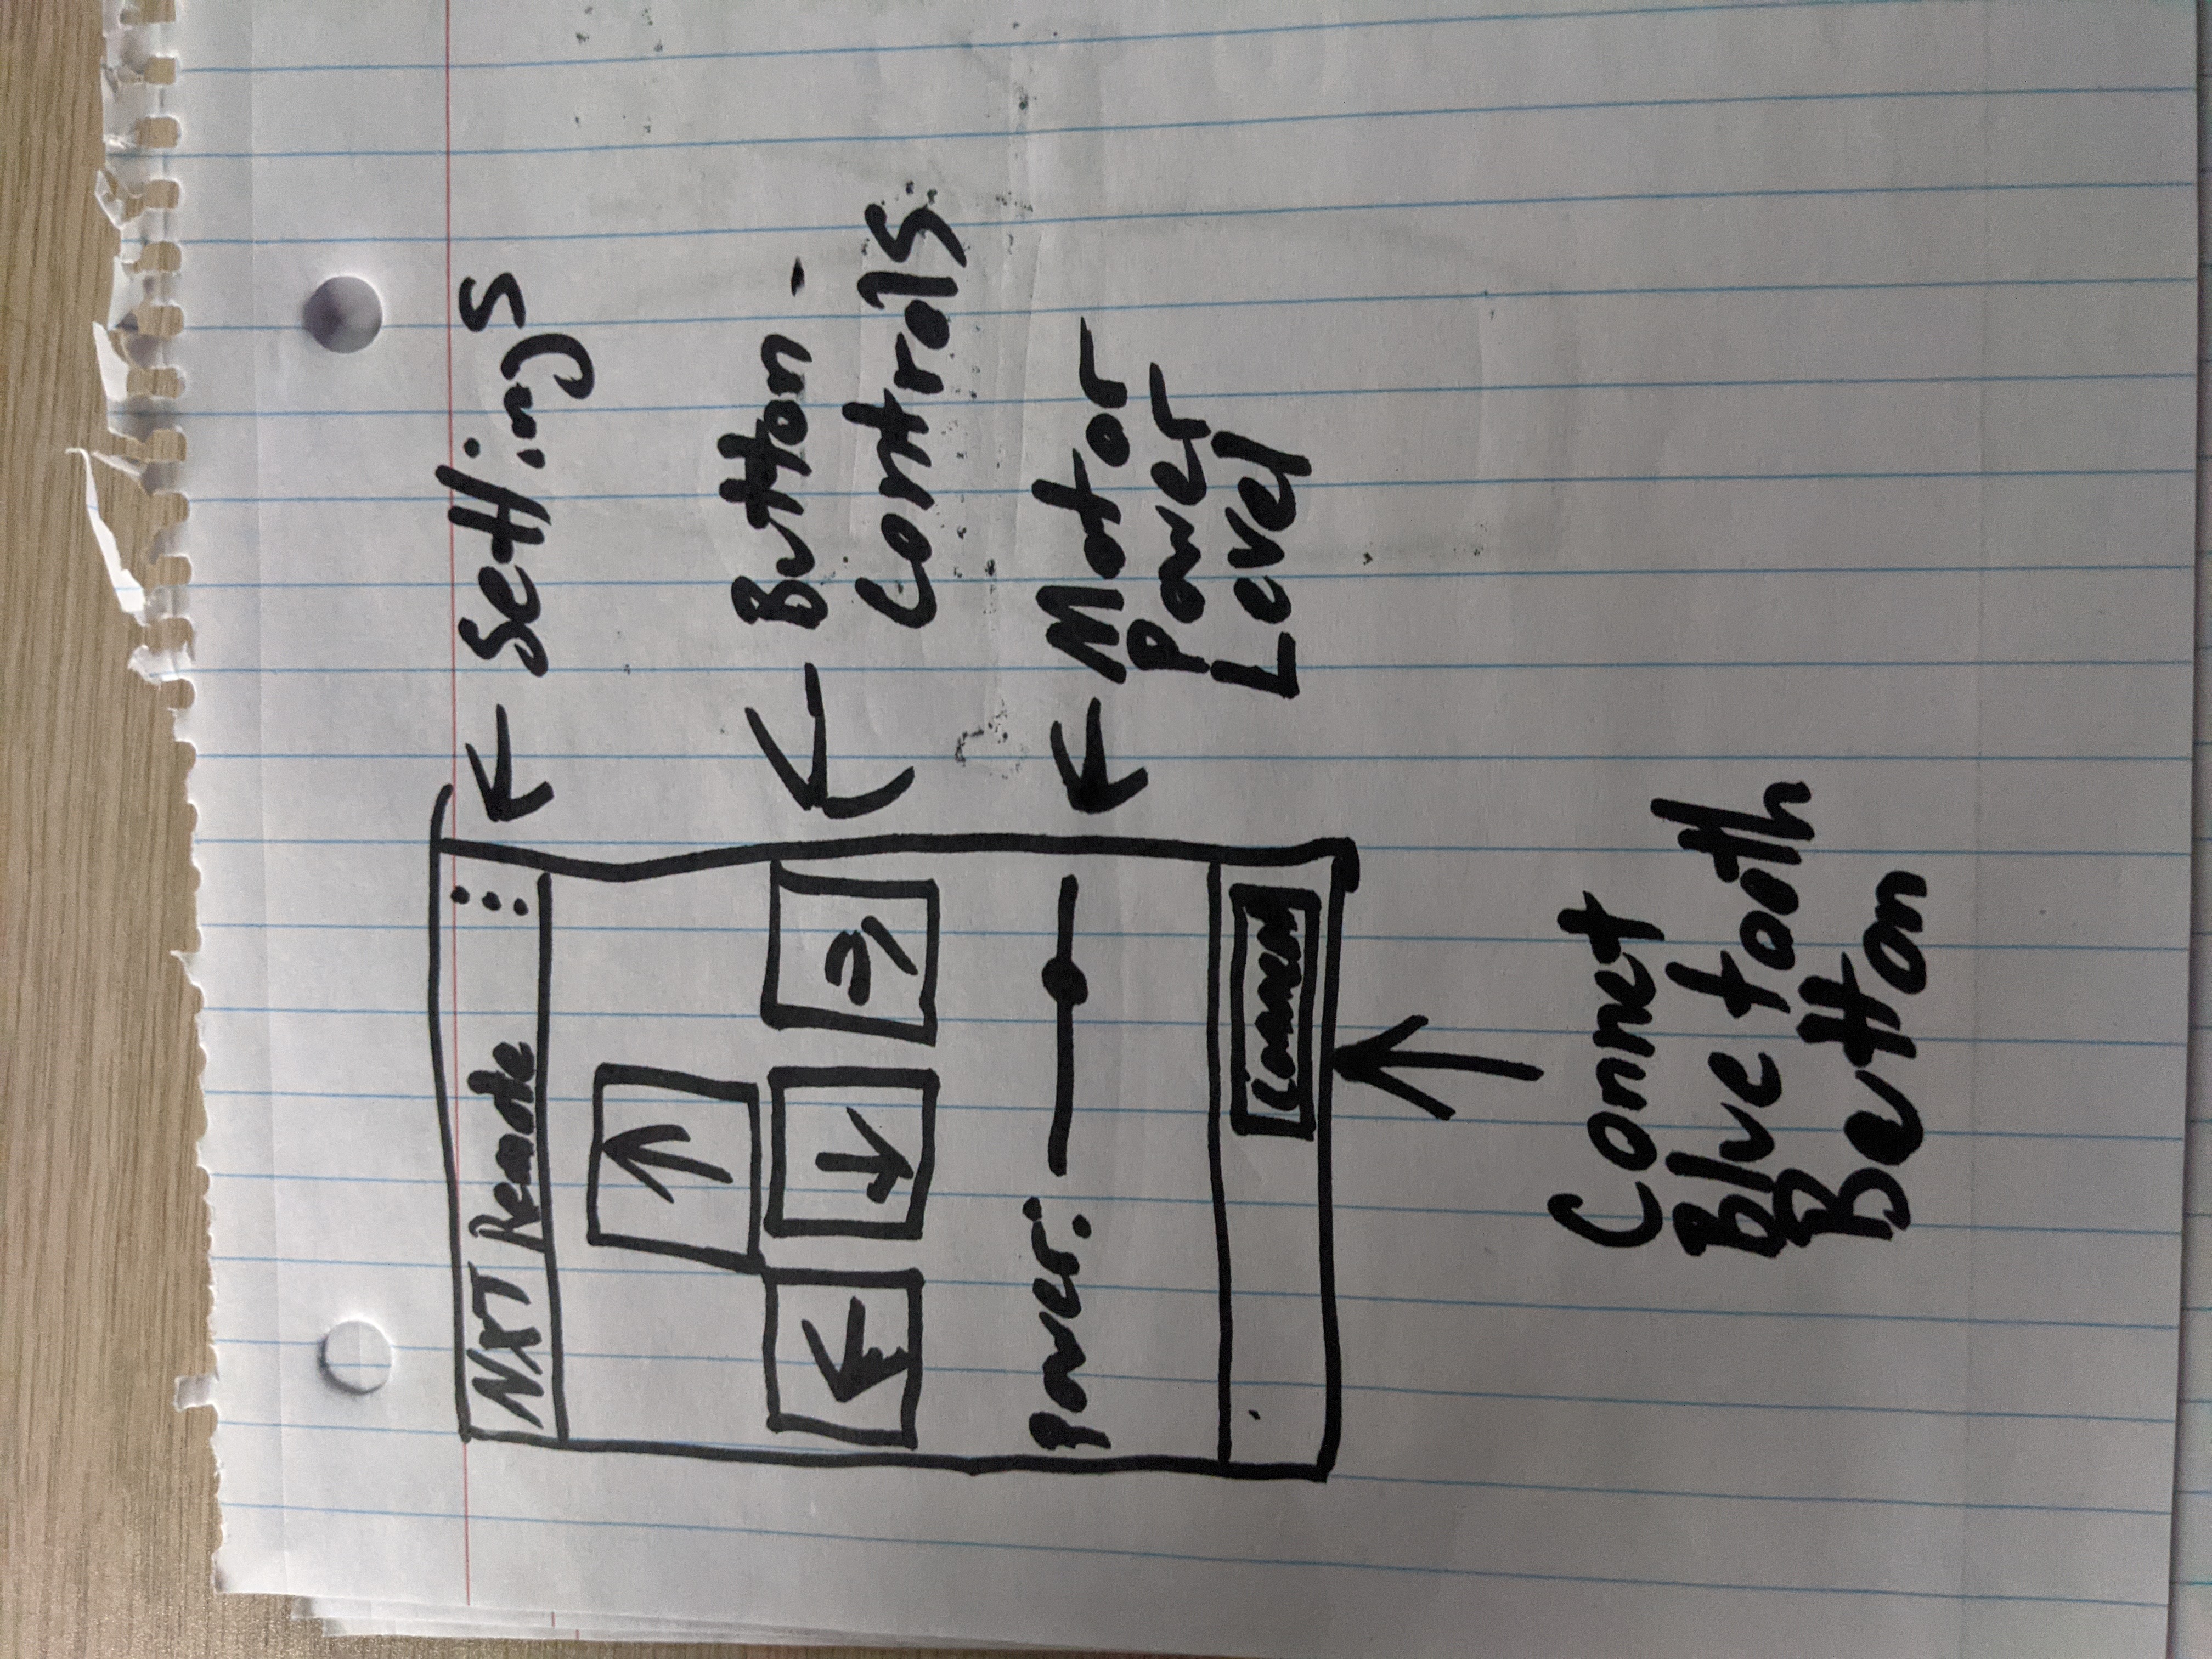 NXT Remote
Settings
Button
Controls
Power:
Motor
Power
Level
Connect
Connet
Bluetooth
Button